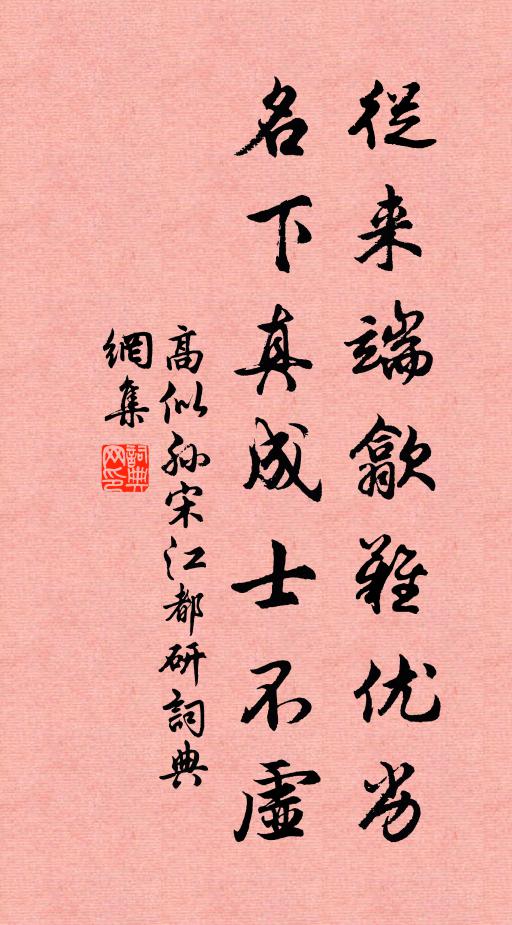 從来端歙難优劣
名下真成士不虛
高似孙宋江都研詞典
網集
詞典
网印